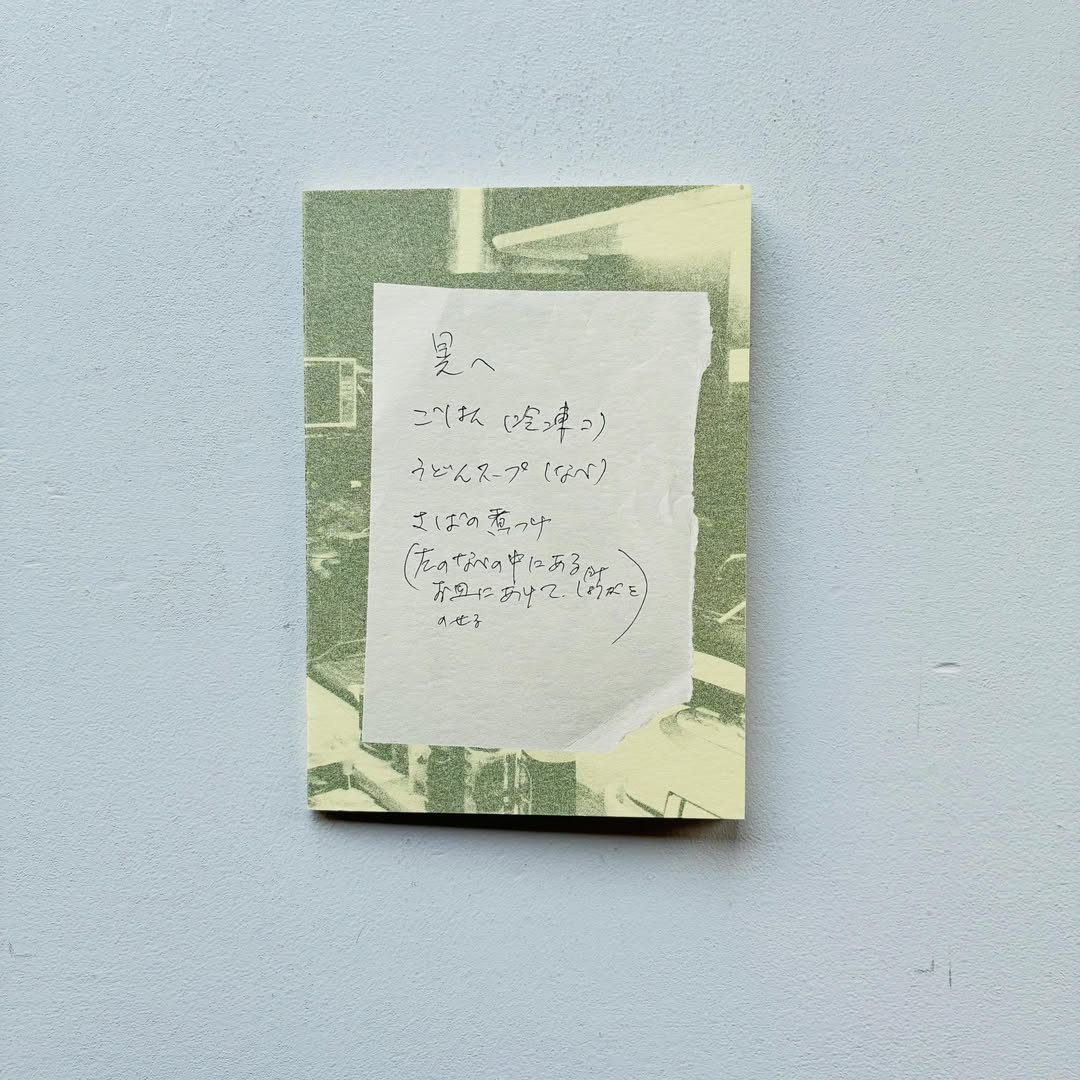 へ
ごはん (冷凍コ)
うどんスープ (なべ)
さばの煮つけ
(左のなべの中にある
お皿にあけて、針しょうがを
のせる)